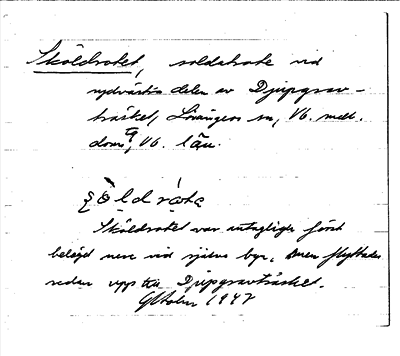 Sköldrotet, soldatrote vid
sydvästra delen av Djupgrav-
träsket, Lövångers sn, Vb. med.
doms, Vb. län.
Sköldrotet var antagligen först
belägd nere vid själva byn, men flyttades
sedan upp till Djupgravträsket.
Oktober 1947